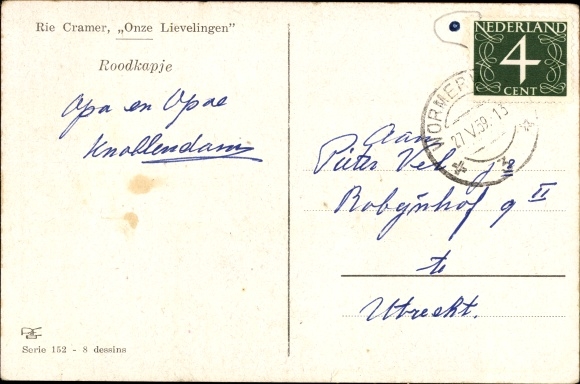 Rie Cramer, „Onze Lievelingen”
Roodkapje
Opa en Opoe
Knollendam
NEDERLAND
4
CENT
27.V.59.13
Aan
Pieter Vel jr
Robijnhof 9 II
te
Utrecht.
Serie 152 - 8 dessins